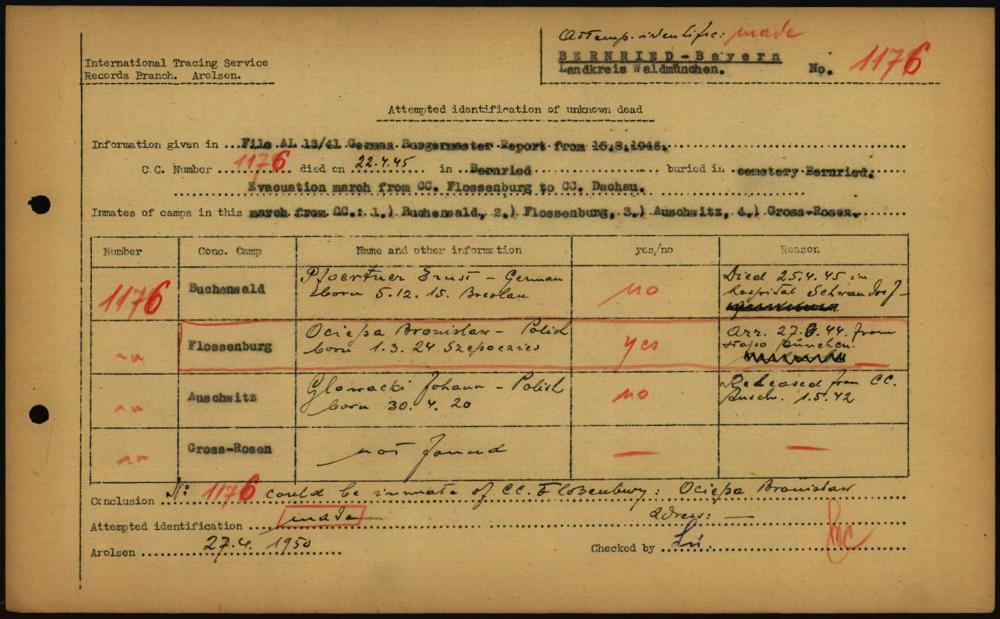 Attemp. identific: made
International Tracing Service
Records Branch. Arolsen.
BERNRIED-Bayern
Landkreis Waldmünchen.
No. 1176
Attempted identification of unknown dead
Information given in File AL 13/41 German Burgermaster Report from 15.8.1946.
C.C. Number 1176 died on 22.4.45 in Bernried buried in cemetery Bernried.
Evacuation march from CC. Flossenburg to CC. Dachau.
Inmates of camps in this march from CC.: 1.) Buchenwald, 2.) Flossenburg, 3.) Auschwitz, 4.) Gross-Rosen.
Number Conc. Camp Name and other information yes/no Reason
1176 Buchenwald Ploertner Ernst - German
born 5.12.15. Breslau
no
Died 25.4.45 in
hospital Schwandorf
-"- Flossenburg Ociepa Bronislaw - Polish
born 1.3.24
yes
Arr. 27.6.44 from
Stapo München.
-"- Auschwitz Glowacki Johann - Polish
born 30.4.20
no
Released from CC.
Ausch. 1.5.42
-"- Gross-Rosen not found — —
Conclusion No: 1176 could be inmate of CC. Flossenburg: Ociepa Bronislaw
Attempted identification made adress: —
Arolsen 27.4. 1950 Checked by